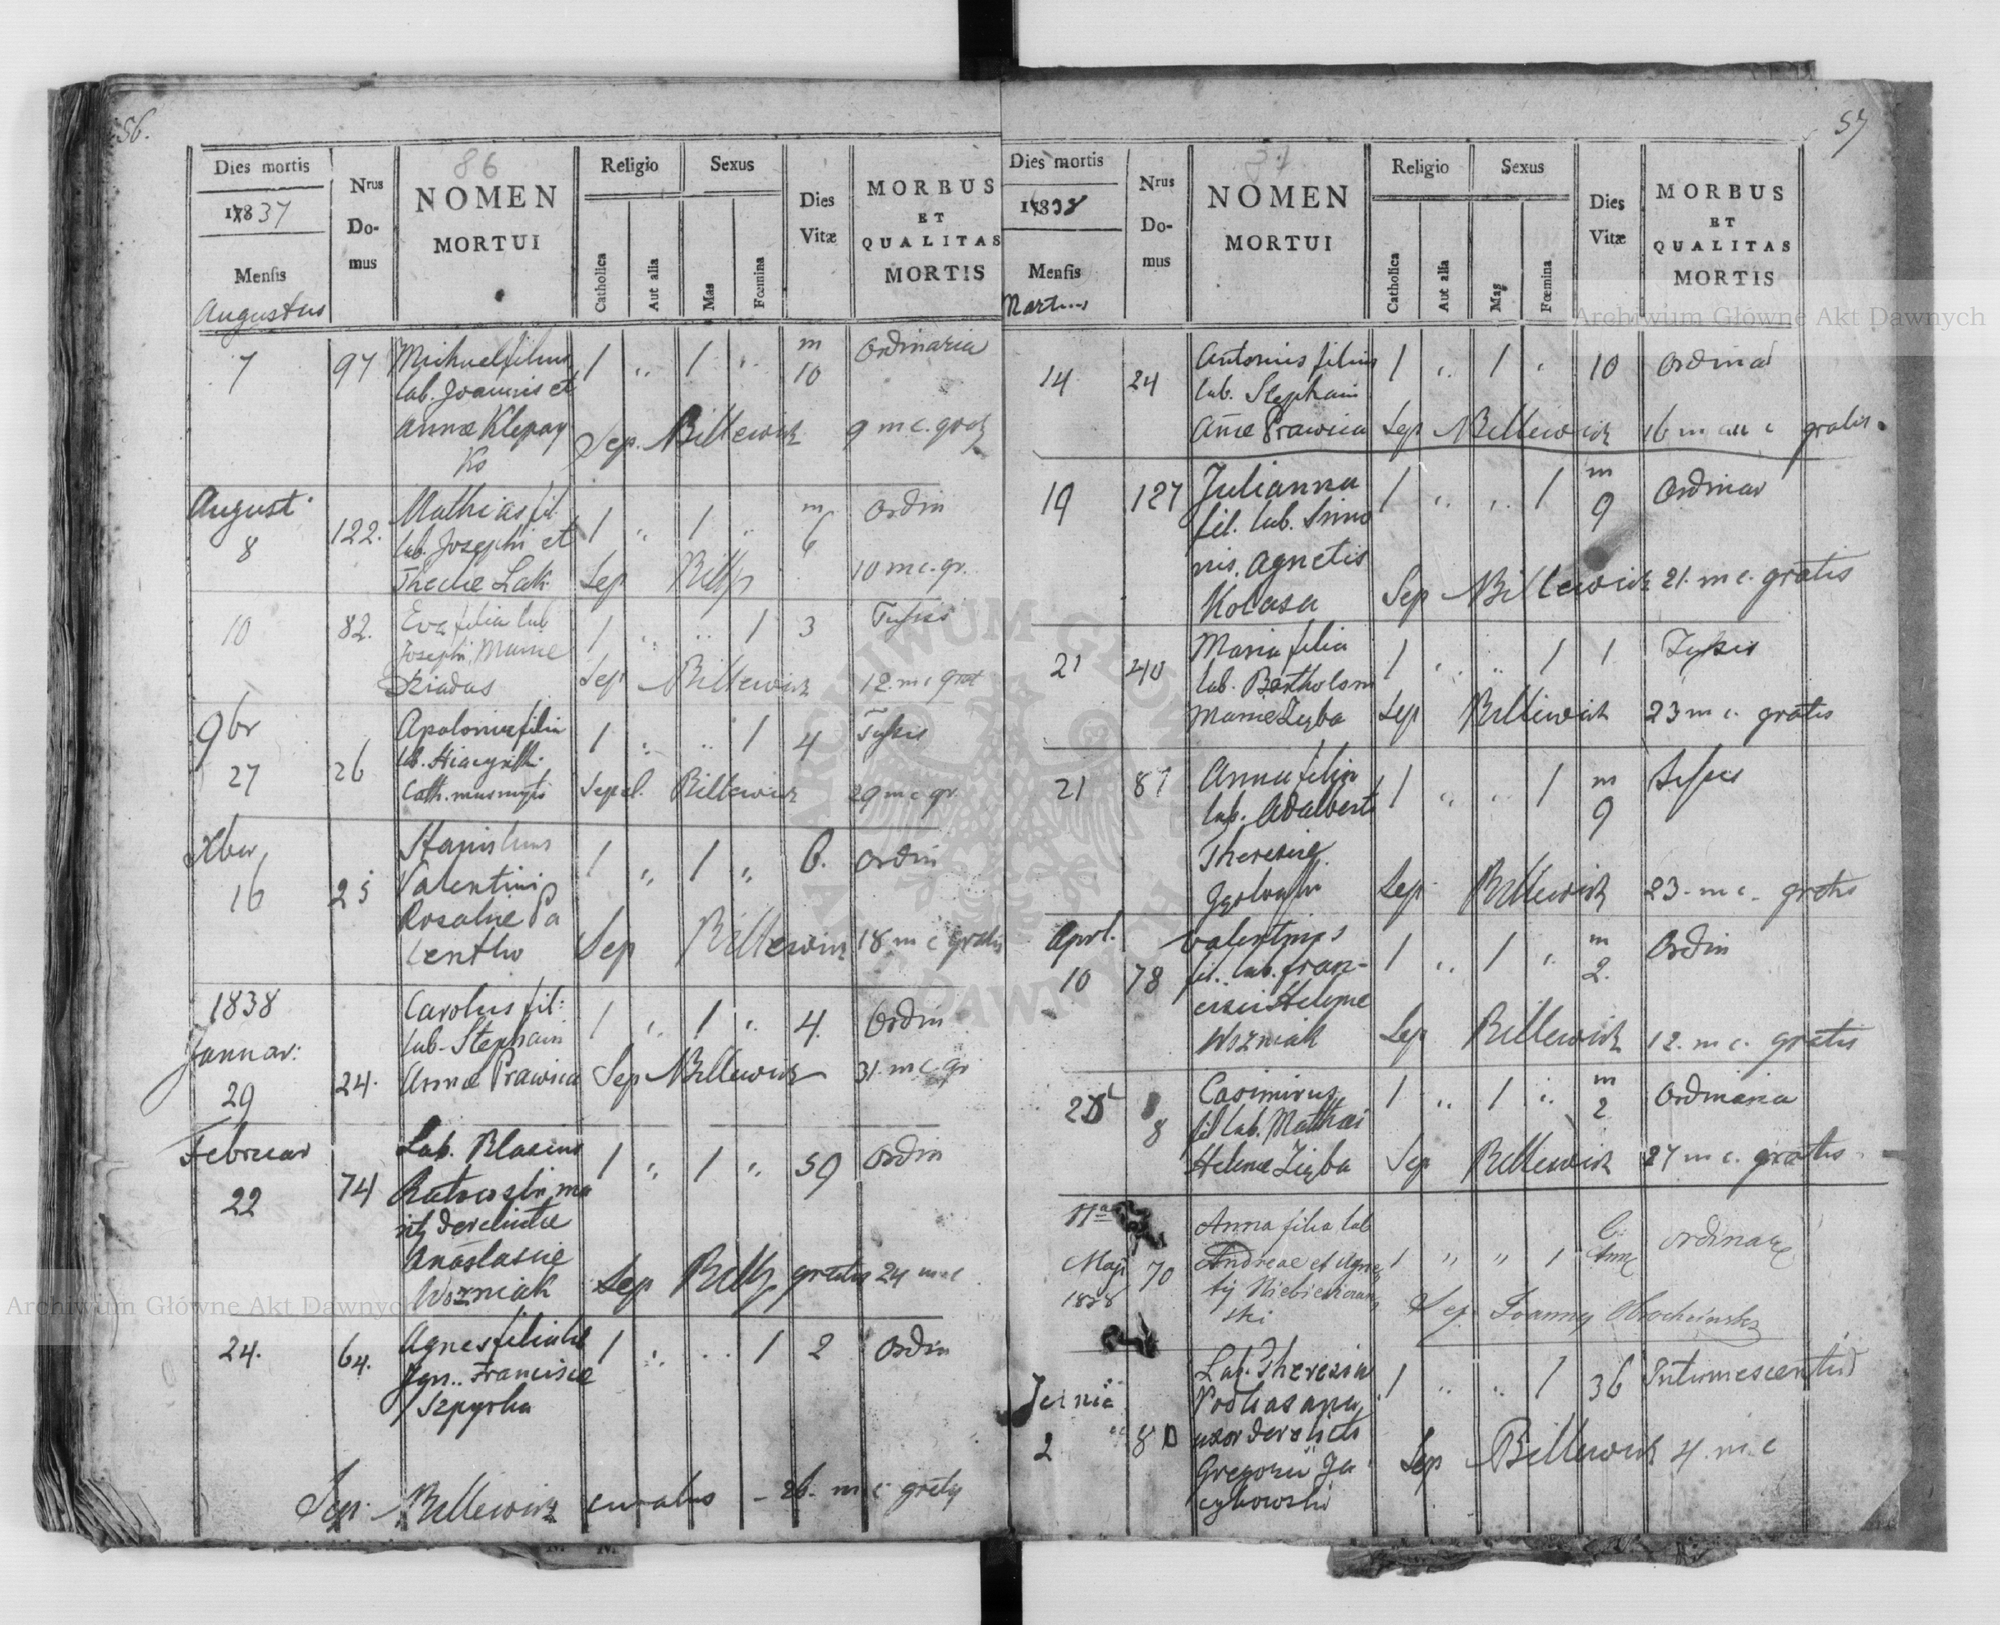 56.
Dies mortis
1837
Mensis
Augustus
Nrus
Do-
mus
86
NOMEN
MORTUI
Religio
Catholica
Aut alia
Sexus
Mas
Fœmina
Dies
Vitæ
MORBUS
ET
QUALITAS
MORTIS
7 97 Michael filius 1 „ 1 „ m Ordinaria
lab. Joannis et 10
Annæ Klepay
ko
Sep. Billewicz 9 m c. grat
August 122. Mathias fil 1 „ 1 „ m Ordin
8 lab. Josephi et 6
Theclæ Lak Sep 10 m c. gr.
10 82. Eva filia lab 1 „ „ 1 3 Tussis
Josephi, Mariæ
Dziadas Sep Billewicz 12. m c grat
9br 26 Apolonia filia 1 „ „ 1 4 Tussis
27 lab. Hiacynth.
Cath. Sepel. Billewicz 29 m c gr.
Xber 25 Stanislaus 1 „ 1 „ 6. Ordin
16 Valentini
Rosaliæ Pa
Sep Billewicz 18 m c gratis
1838 Carolus fil: 1 „ 1 „ 4. Ordin
Januar: lab. Stephani
29 24. Annæ Prawica Sep Billewicz 31 m c. gr
Februar 74 Lab. Blasius 1 „ 1 „ 59 Ordin
22
derelictæ
Anastasiæ
Wozniak Sep gratis 24 m c
24. 64. Agnes filia lab 1 „ „ 1 2 Ordin
Francisca
Szpyrka
Sep. Billewicz curatus - 26. m c gratis
57
Dies mortis
1838
Mensis
Martius
Nrus
Do-
mus
37
NOMEN
MORTUI
Religio
Catholica
Aut alia
Sexus
Mas
Fœmina
Dies
Vitæ
MORBUS
ET
QUALITAS
MORTIS
14 24 Antonius filius 1 „ 1 „ 10 Ordinar
lab. Stephani
Annæ Prawica Sep Billewicz 16 m c gratis.
19 127 Julianna 1 „ „ 1 m Ordinar
fil. lab. Simo 9
nis, Agnetis
Kolasa Sep Billewicz 21. m c. gratis
21 40 Maria filia 1 „ „ 1 1 Tussis
lab. Bartholom
Mariæ Zięba Sep Billewicz 23 m c. gratis
21 87 Anna filia 1 „ „ 1 m Tussis
lab. Adalberti 9
Theresiæ
Sep Billewicz 23. m c. gratis
Aprl. Valentinus 1 „ 1 „ m Ordin
10 78 fil. lab. Fran- 2.
cisci Helenæ
Wozniak Sep Billewicz 12. m c. gratis
28 8 Casimirus 1 „ 1 „ m Ordinaria
fil lab. Mathæi 2
Helenæ Zięba Sep Billewicz 27 m c. gratis
11a Anna filia lab 1 „ „ 1 6. ordinare
Maji 70 Andreae et Agne Ann
1838
ski Sep. Joannes
Junia Lab. Theresia 1 „ „ 1 36
2 80 Podhasapa
uxor derelicta
Gregorii Ja
cykowski Sep Billewicz 4. m c
Archiwum Główne Akt Dawnych
Archiwum Główne Akt Dawnych
ARCHIWUM GŁÓWNE AKT DAWNYCH